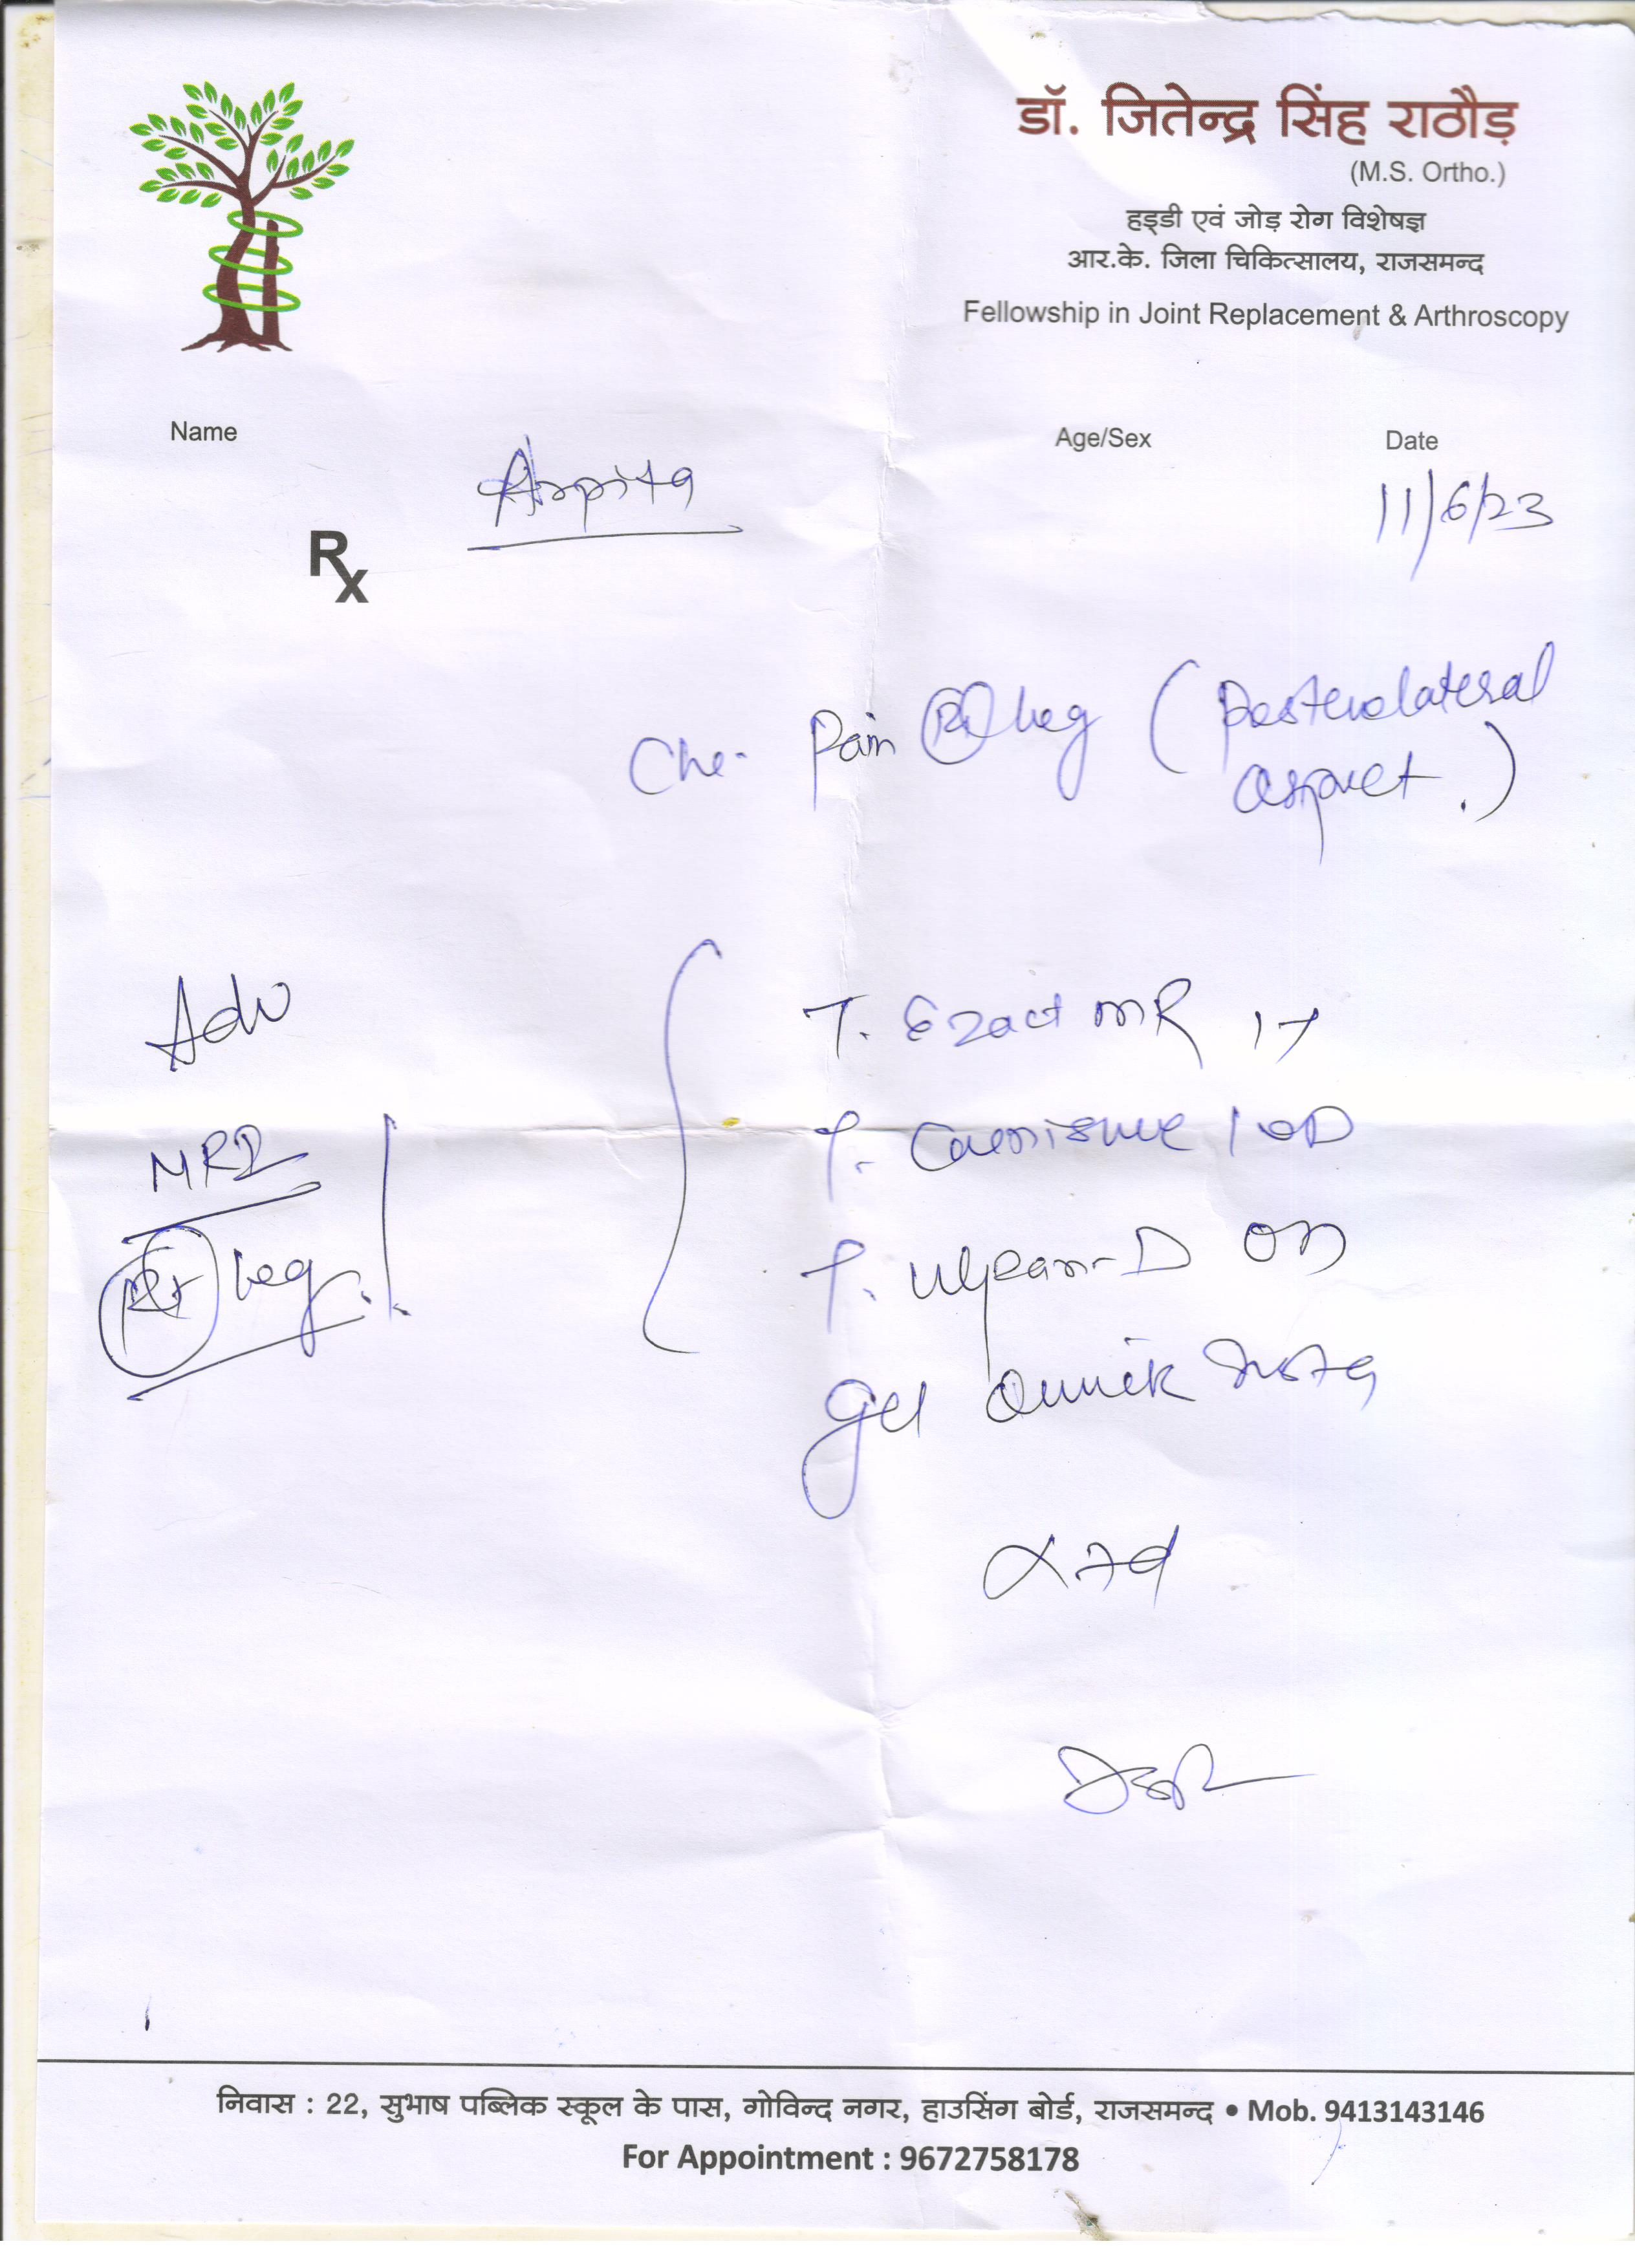 डॉ. जितेन्द्र सिंह राठौड़
(M.S. Ortho.)
हड्डी एवं जोड़ रोग विशेषज्ञ
आर.के. जिला चिकित्सालय, राजसमन्द
Fellowship in Joint Replacement & Arthroscopy
Name
Age/Sex
Date
Arpita
11/6/23
Rx
Pain Rt leg (Posterolateral
aspect.)
Adv
MRI
Rt leg.
T. Ezact MR
T.
T. D OD
gel
निवास : 22, सुभाष पब्लिक स्कूल के पास, गोविन्द नगर, हाउसिंग बोर्ड, राजसमन्द • Mob. 9413143146
For Appointment : 9672758178